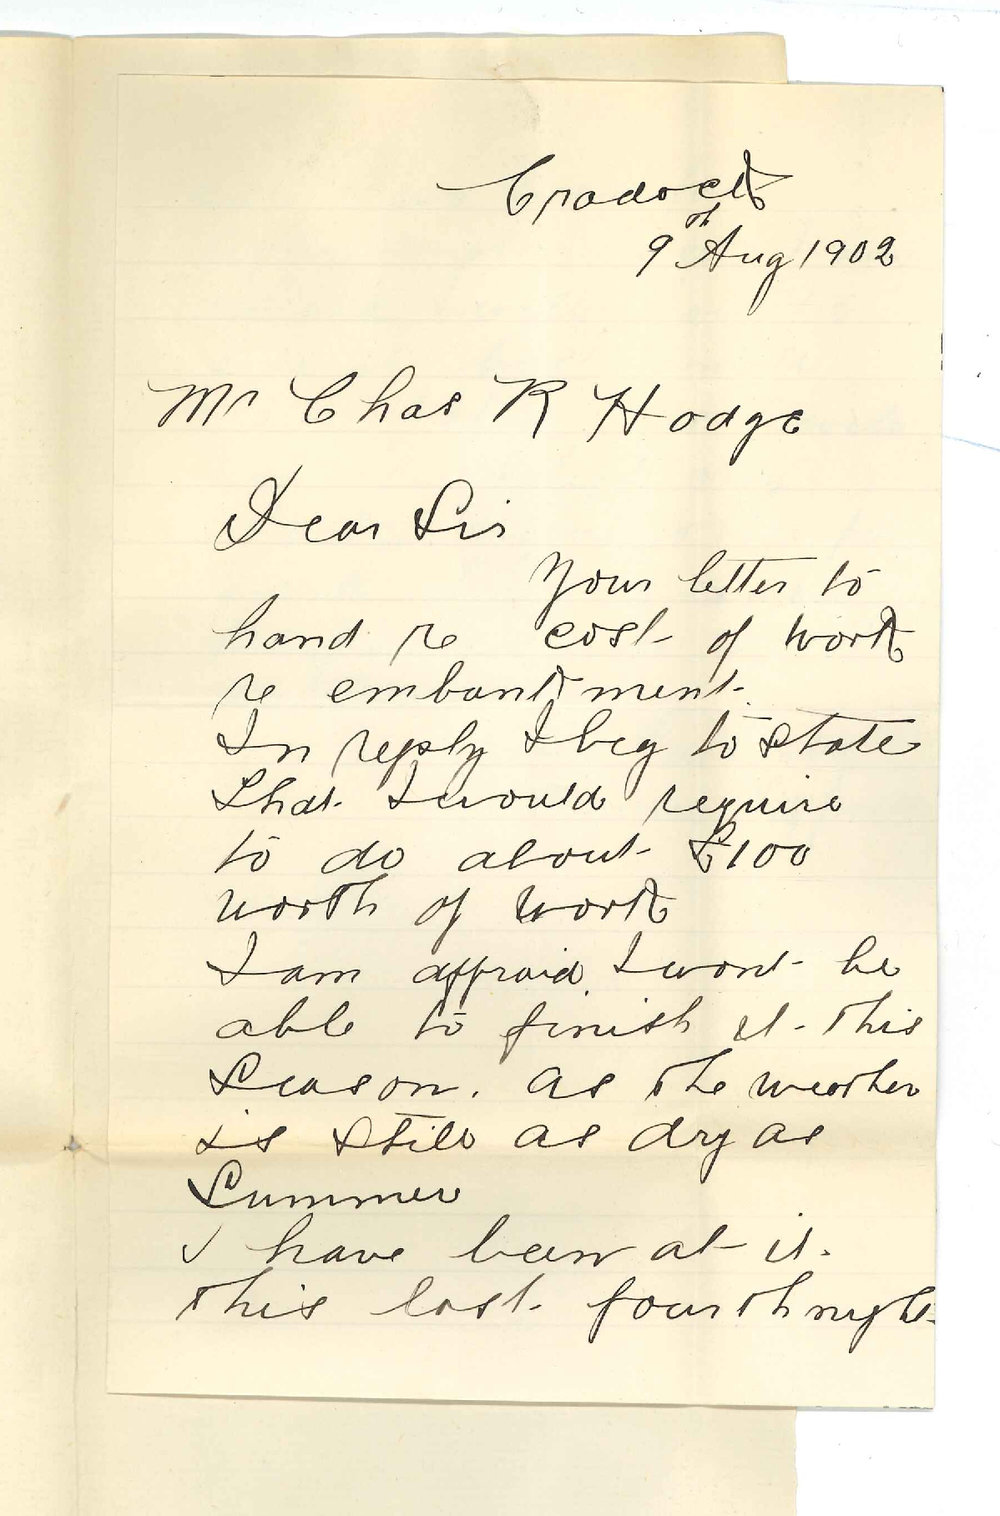 Cradock
9th Aug 1902
Mr Chas R Hodge
Dear Sir
Your letter to
hand re cost of work
re embankment.
In reply I beg to state
that I would require
to do about £100
worth of work
I am affraid I wont be
able to finish it this
Season. as the weather
is still as dry as
Summer
I have been at it.
this last fourthnight